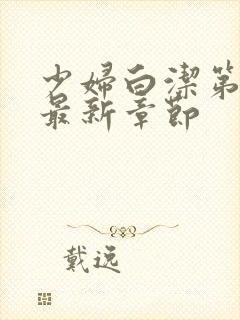 少婦白潔第
最新章節
戴逸